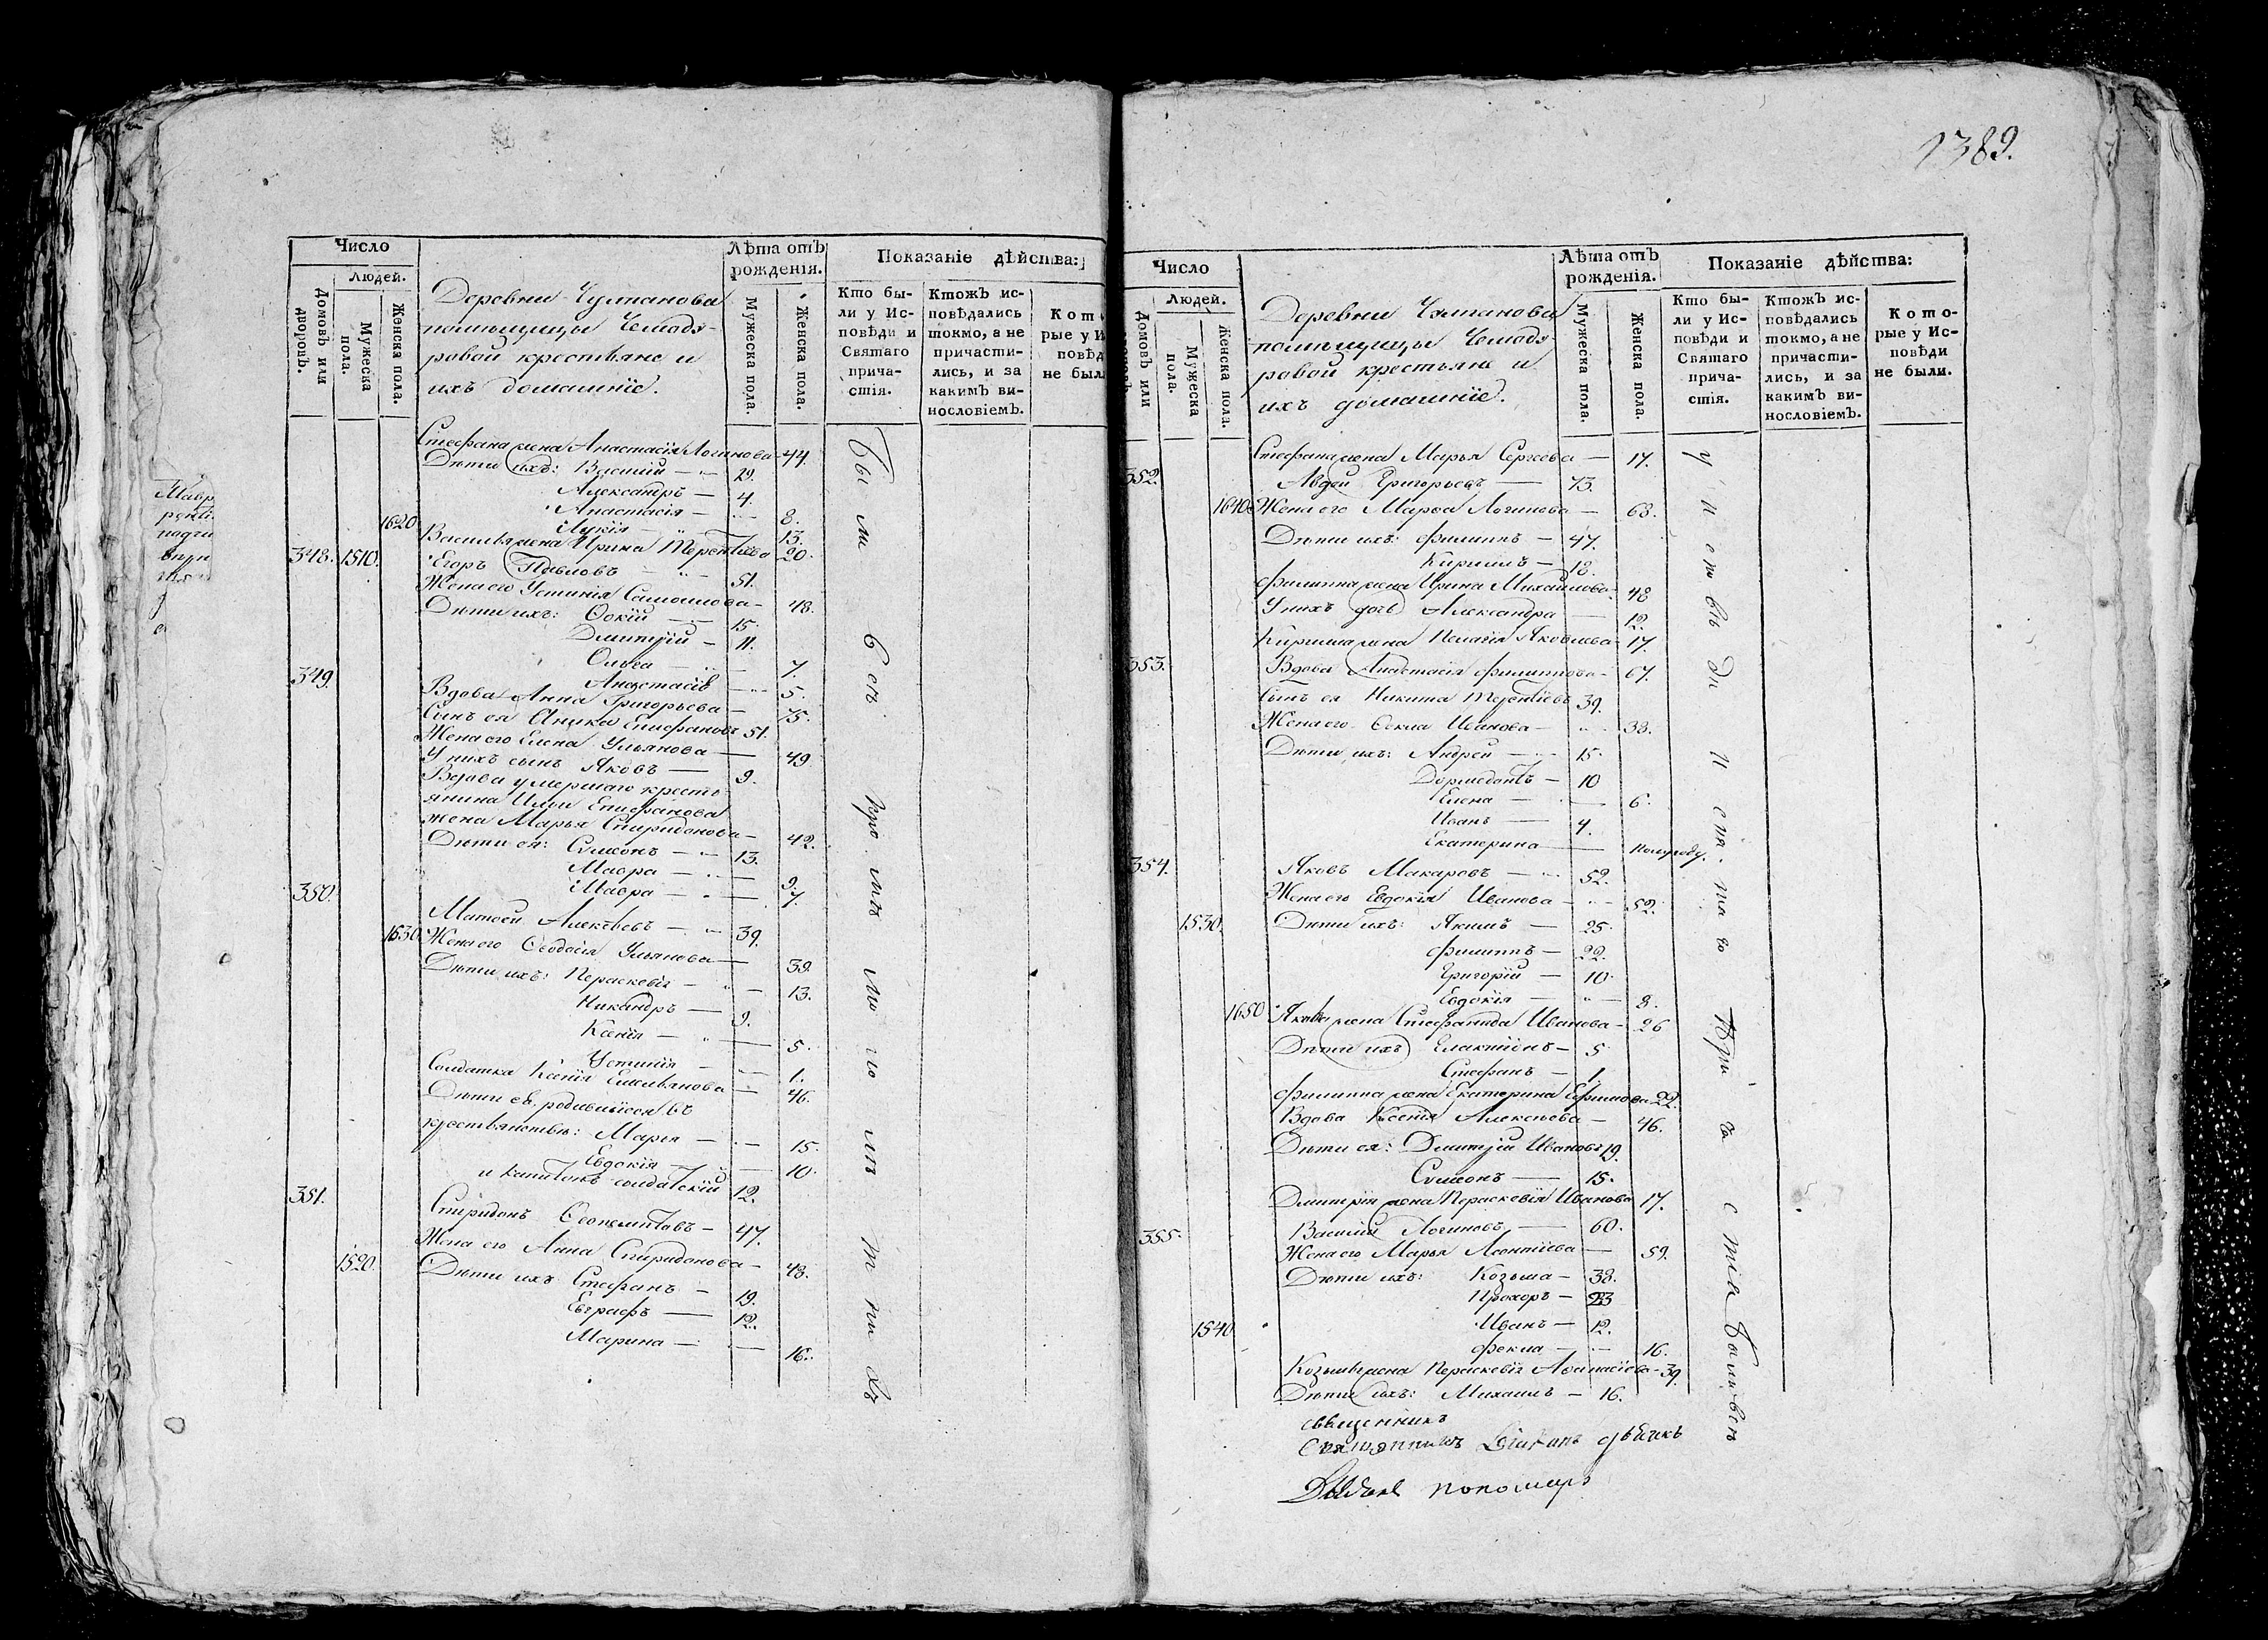 1389.
Число
Людей.
Домовъ или дворовъ.
Мужеска пола.
Женска пола.
Деревни Чулпанова
помѣщицы Чемодѣ-
ровой крестьяне и
ихъ домашнїе.
Лѣта отъ рожденія.
Мужеска пола.
Женска пола.
Показаніе дѣйства:
Кто бы-
ли у Ис-
повѣди и
Святаго
прича-
стія.
Ктожъ ис-
повѣдались
токмо, а не
причасти-
лись, и за
какимъ ви-
нословіемъ.
Кото
рые у И
повѣд
не был
Стефана жена Анастасія Логинова - 44.
Дѣти ихъ: Василій — 19.
Александръ — 4.
Анастасія — 8.
1620 Лукія — 13.
Васильѣ жена Ирина Терентіева 20.
348. 1510. Егоръ Павловъ — 51.
Жена его Устинія Самоилова - 48.
Дѣти ихъ: Ѳокій — 15.
Дмитрій — 11.
Ольга — 7.
Анастасія — 5.
349. Вдова Анна Григорьева — 75.
Сынъ ея Аника Епифановъ 51.
Жена его Елена Ульянова — 49.
У нихъ сынъ Яковъ — 9.
Вдова умершаго кресть
янина Ильи Епифанова
жена Марья Спиридонова — 42.
Дѣти ея: Сѵмеонъ — 13.
Мавра — 9.
Мавра — 7.
350. Матвей Алексѣевъ — 39.
1630 Жена его Ѳеодосія Ульянова — 39.
Дѣти ихъ: Пераскевія — 13.
Никандръ — 9.
Ксенія — 5.
Устинія — 1.
Солдатка Ксенія Емельянова — 46.
Дѣти ея родившіеся въ
крестьянствѣ: Марья — 15.
Евдокія — 10.
и Капитонъ солдатскій 12.
351. Спиридонъ Ѳеопемптовъ — 47.
Жена его Анна Спиридонова — 48.
1520. Дѣти ихъ: Стефанъ — 19.
Евграфъ — 12.
Марина — 16.
Были
всѣ
кромѣ
малолѣтнихъ
Число
Людей.
Домовъ или
Мужеска пола.
Женска пола.
Деревни Чулпанова
помѣщицы Чемодѣ-
ровой крестьяне и
ихъ домашнїе.
Лѣта отъ рожденія.
Мужеска пола.
Женска пола.
Показаніе дѣйства:
Кто бы-
ли у Ис-
повѣди и
Святаго
прича-
стія.
Ктожъ ис-
повѣдались
токмо, а не
причасти-
лись, и за
какимъ ви-
нословіемъ.
Кото-
рые у Ис-
повѣди
не были.
Стефана жена Марья Сергеева — 17.
352. Авдей Григорьевъ — 73.
1640 Жена его Марѳа Логинова — 68.
Дѣти ихъ: Филиппъ — 47.
Кирилъ — 18.
Филиппа жена Ирина Михайлова - 48
У нихъ дочь Александра — 12.
Кирилла жена Пелагія Яковлева - 17.
353. Вдова Анастасія Филиппова - 67.
Сынъ ея Никита Терентіевъ 39.
Жена его Ѳекла Иванова — 38.
Дѣти ихъ: Андрей — 15.
Дормедонтъ — 10
Елена — 6.
Иванъ — 4.
Екатерина — полугоду.
354. Яковъ Макаровъ — 52.
Жена его Евдокія Иванова — 52.
1530. Дѣти ихъ: Якимъ — 25.
Филиппъ — 22.
Григорій — 10.
Евдокія — 8.
1650 Якима жена Стефанида Иванова - 26
Дѣти ихъ Галактіонъ — 5
Стефанъ — 1.
Филиппа жена Екатерина Ефимова 22.
Вдова Ксенія Алексѣева — 46.
Дѣти ея: Дмитрій Ивановъ 19.
Сѵмеонъ — 15.
Дмитрія жена Пераскевія Иванова 17.
355. Василій Логиновъ — 60.
Жена его Марья Леонтіева — 59.
Дѣти ихъ: Козьма — 38.
Прохоръ — 23
1540 Иванъ — 12.
Фекла — 16.
Козьмы жена Пераскевія Аѳанасіева - 39.
Дѣти ихъ: Михаилъ — 16.
у исповѣди
и святаго
причастія были всѣ
священникъ
Священникъ Діаконъ дьячкъ
пономарь